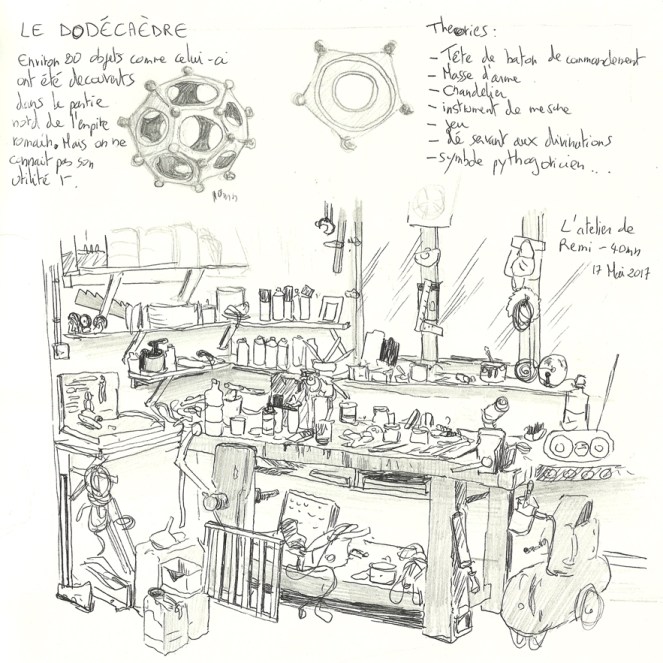 LE DODÉCAÈDRE
Environ 80 objets comme celui-ci
ont été découverts
dans la partie
nord de l'empire
romain. Mais on ne
connait pas son
utilité !
10mn
Théories :
- Tête de baton de commandement
- Masse d'arme
- Chandelier
- instrument de mesure
- jeu
- Dé servant aux divinations
- symbole pythagoricien...
L'atelier de
Remi - 40mn
17 Mai 2017